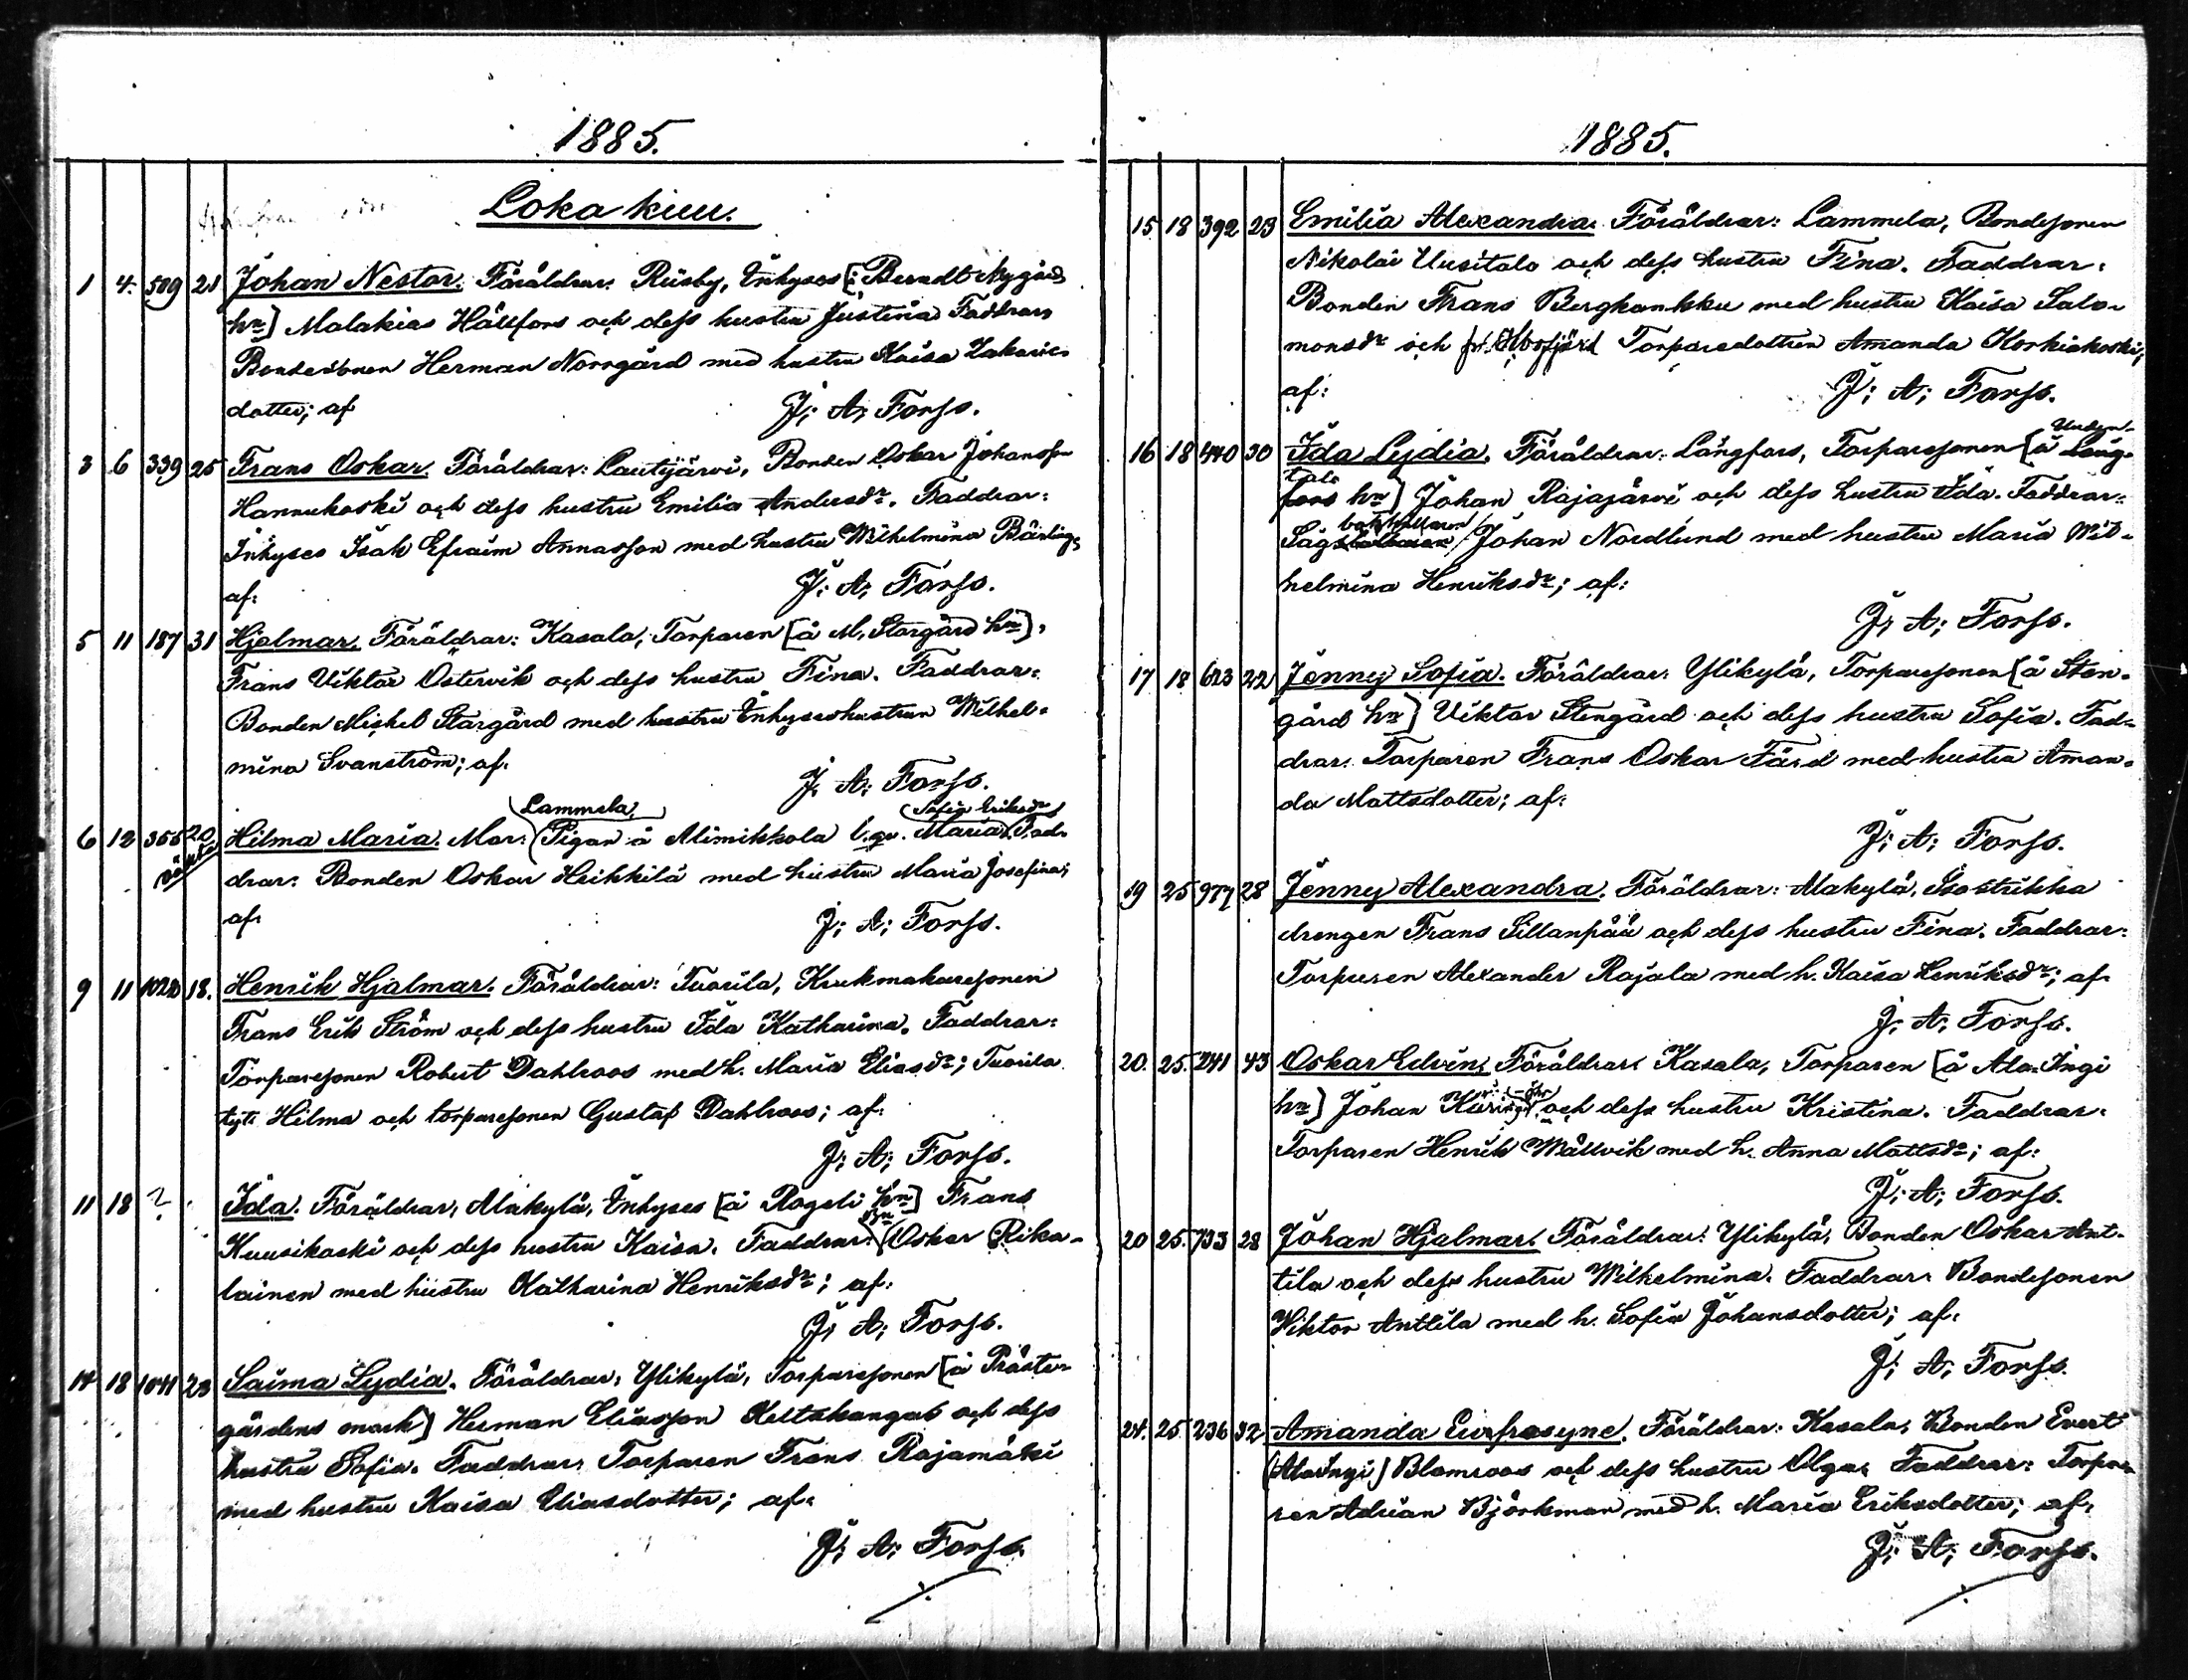 1885.
Lokakuu.
1 4. 509 21 Johan Nestor. Föräldrar: Riisby, Inhyses [: Berndt Nygård
hn] Malakias Hällfors och dess hustru Justina Faddrar
Bondesonen Herman Norrgård med hustru Kaisa Zakarie
dotter; af J: A: Forss.
3 6 339 25 Frans Oskar. Föräldrar: Lautijärvi, Bonden Oskar Johansson
Hannukoski och dess hustru Emilia Andersdr. Faddrar:
Inhyses Isak Efraim Annasson med hustru Wilhelmina
af: J: A: Forss.
5 11 187 31 Hjalmar. Föräldrar: Kasala, Torparen [å M. Storgård hn],
Frans Viktor Östervik och dess hustru Fina. Faddrar:
Bonden Mickel Storgård med hustru Inhyseshustrun Wilhel-
mina Svanström; af: J: A: Forss.
Lammela, Sofia Eriksdr
6 12 355 20 Hilma Maria. Mor: (Pigan å Alimikkola Maria Fad-
drar: Bonden Oskar Heikkilä med hustru Maria Josefina;
af: J: A: Forss.
9 11 1020 18. Henrik Hjalmar. Föräldrar: Tuorila, Krukmakaresonen
Frans Erik Ström och dess hustru Ida Katharina. Faddrar:
Torparesonen Robert Dahlroos med h. Maria Eliasdr; Tuorila
Hilma och torparesonen Gustaf Dahlroos; af:
J: A: Forss.
11 18 ? Ida. Föräldrar: Alakylä, Inhyses [å Rogeli hn] Frans
Kuusikoski och dess hustru Kaisa. Faddrar: (Oskar Rika-
lainen med hustru Katharina Henriksdr; af:
J: A: Forss.
14 18 1041 23 Saima Lydia. Föräldrar: Ylikylä, Torparesonen [å Präste-
gårdens mark] Herman Eliasson Keltakangas och dess
hustru Sofia. Faddrar: Torparen Frans Rajamäki
med hustru Kaisa Eliasdotter; af:
J: A: Forss.
1885.
15 18 392 23 Emilia Alexandra. Föräldrar: Lammela, Bondesonen
Nikolai Uusitalo och dess hustru Fina. Faddrar:
Bonden Frans Bergkankku med hustru Kaisa Salo-
monsdr och Torparedottren Amanda Korkiakoski,
af: J: A: Forss.
Uuden-
16 18 440 30 Ida Lydia. Föräldrar: Långfors, Torparesonen [å Lång-
talo
fors hn] Johan Rajajärvi och dess hustru Ida. Faddrar:
Johan Nordlund med hustru Maria Wil-
helmina Henriksdr; af:
J: A: Forss.
17 18 623 22 Jenny Sofia. Föräldrar: Ylikylä, Torparesonen [å Sten-
gård hn] Viktor Stengård och dess hustru Sofia. Fad-
drar: Torparen Frans Oskar Färd med hustru Aman-
da Mattsdotter; af:
J: A: Forss.
19 25 977 28 Jenny Alexandra. Föräldrar: Alakylä, Isostrikka
drengen Frans Sillanpää och dess hustru Fina. Faddrar:
Torparen Alexander Rajala med h. Kaisa Henriksdr; af:
J: A: Forss.
20. 25. 241 43 Oskar Edvin. Föräldrar: Kasala, Torparen [å Ala-Ingi
hn] Johan och dess hustru Kristina. Faddrar:
Torparen Henrik Wållvik med h. Anna Mattsdr; af:
J: A: Forss.
20 25. 733 28 Johan Hjalmar. Föräldrar: Ylikylä, Bonden Oskar Ant-
tila och dess hustru Wilhelmina. Faddrar: Bondesonen
Viktor Anttila med h. Sofia Johansdotter; af:
J: A: Forss.
24. 25. 236 32 Amanda Eufrosyne. Föräldrar: Kasala, Bonden Evert
(Ala-Ingi) Blomroos och dess hustru Olga. Faddrar: Torpa-
ren Adrian Björkman med h. Maria Eriksdotter; af:
J: A: Forss.